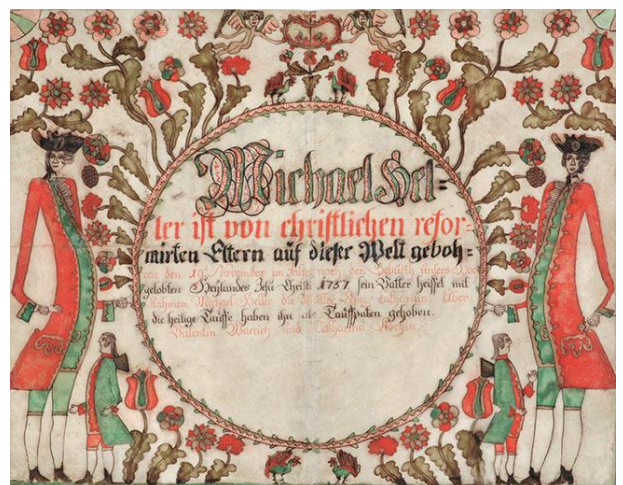 Michael Hel=
ler ist von christlichen refor=
mirten Eltern auf dieser Welt geboh=
ren den 19 November im Jahr nach der Geburth unsers
gelobten Heylandes Jesu Christi 1757 sein Vatter heisset mit
Nahmen Michael Heller die Mutter Über
die heilige Tauffe haben ihn als Tauffpaten gehoben.
Valentin und Catharina